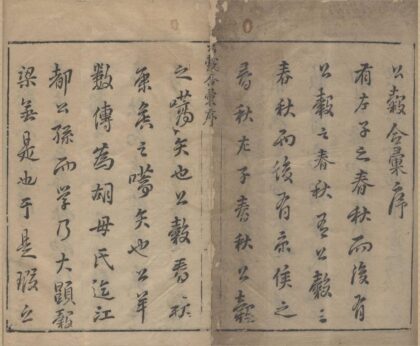 公穀合彙序
有左子之春秋而後有
公穀之春秋有公穀之
春秋而後有京侯之
春秋左子春秋公穀
公穀合彙序
之嚆矢也公穀春秋
京矦之嚆矢也公羊
數傳為胡毋氏迄江
都公孫而学乃大顯穀
梁無是也于是瑕丘